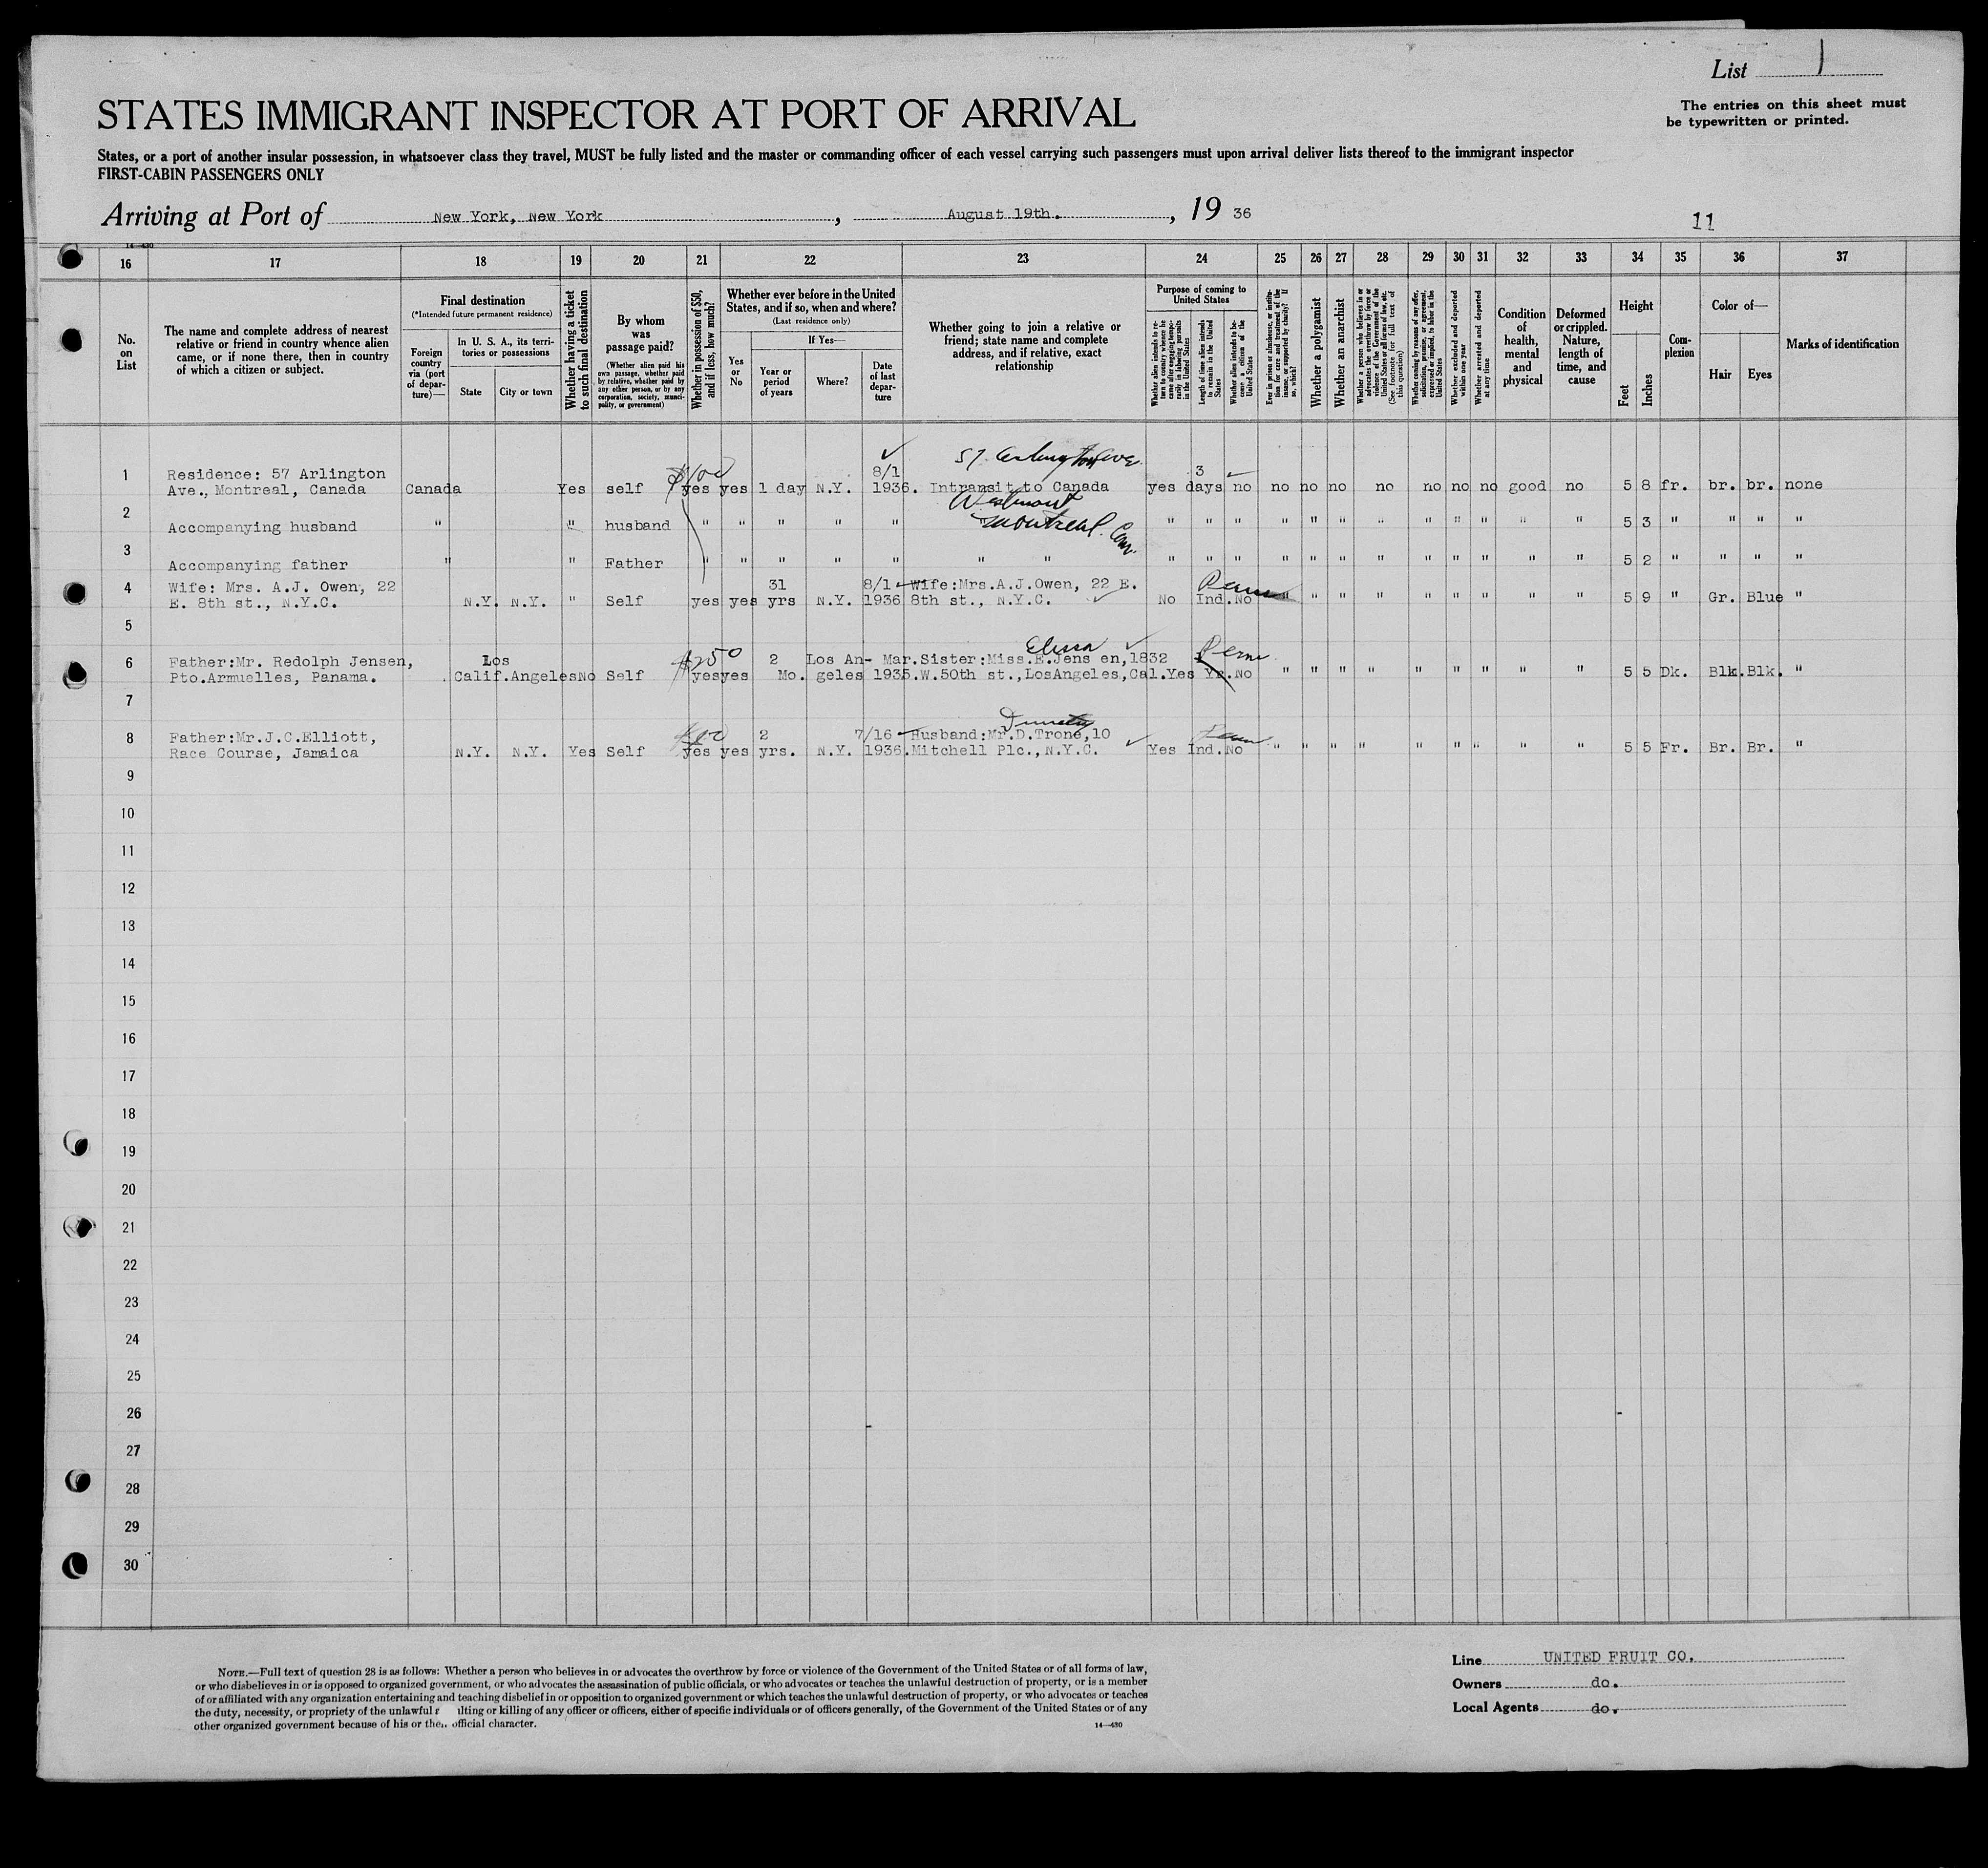 List 1
The entries on this sheet must
be typewritten or printed.
STATES IMMIGRANT INSPECTOR AT PORT OF ARRIVAL
States, or a port of another insular possession, in whatsoever class they travel, MUST be fully listed and the master or commanding officer of each vessel carrying such passengers must upon arrival deliver lists thereof to the immigrant inspector
FIRST-CABIN PASSENGERS ONLY
Arriving at Port of New York, New York, August 19th., 19 36
11
14—430
16 17 18 19 20 21 22 23 24 25 26 27 28 29 30 31 32 33 34 35 36 37
No.
on
List
The name and complete address of nearest
relative or friend in country whence alien
came, or if none there, then in country
of which a citizen or subject.
Final destination
(*Intended future permanent residence)
Foreign
country
via (port
of depar-
ture)—
In U. S. A., its terri-
tories or possessions
State
City or town
Whether having a ticket
to such final destination
By whom
was
passage paid?
(Whether alien paid his
own passage, whether paid
by relative, whether paid by
any other person, or by any
corporation, society, munici-
pality, or government)
Whether in possession of $50,
and if less, how much?
Whether ever before in the United
States, and if so, when and where?
(Last residence only)
Yes
or
No
If Yes—
Year or
period
of years
Where?
Date
of last
depar-
ture
Whether going to join a relative or
friend; state name and complete
address, and if relative, exact
relationship
Purpose of coming to
United States
Whether alien intends to re-
turn to country whence he
came after engaging tempo-
rarily in laboring pursuits
in the United States
Length of time alien intends
to remain in the United
States
Whether alien intends to be-
come a citizen of the
United States
Ever in prison or almshouse, or institu-
tion for care and treatment of the
insane, or supported by charity? If
so, which?
Whether a polygamist
Whether an anarchist
Whether a person who believes in or
advocates the overthrow by force or
violence of the Government of the
United States or all forms of law, etc.
(See footnote for full text of
this question)
Whether coming by reasons of any offer,
solicitation, promise, or agreement,
expressed or implied, to labor in the
United States
Whether excluded and deported
within one year
Whether arrested and deported
at any time
Condition
of
health,
mental
and
physical
Deformed
or crippled.
Nature,
length of
time, and
cause
Height
Feet
Inches
Com-
plexion
Color of—
Hair
Eyes
Marks of identification
57 Arlington Ave.
$100
1 Residence: 57 Arlington 8/1 3
Ave., Montreal, Canada Canada Yes self yes yes 1 day N.Y. 1936. Intransit to Canada yes days no no no no no no no no good no 5 8 fr. br. br. none
Westmount
2 Accompanying husband " " husband " " " " " Montreal. Can. " " " " " " " " " " " " 5 3 " " " "
3 Accompanying father " " Father " " " " " " " " " " " " " " " " " " " 5 2 " " " "
4 Wife: Mrs. A.J. Owen, 22 31 8/1 Wife:Mrs.A.J.Owen, 22 E. Perm
E. 8th st., N.Y.C. N.Y. N.Y. " Self yes yes yrs N.Y. 1936 8th st., N.Y.C. No Ind. No " " " " " " " " " 5 9 " Gr. Blue "
5
Elissa
6 Father:Mr. Redolph Jensen, Los $250 2 Los An- Mar. Sister:Miss.E.Jens en,1832 Perm
Pto.Armuelles, Panama. Calif. Angeles No Self yes yes Mo. geles 1935. W.50th st.,LosAngeles,Cal. Yes Yr. No " " " " " " " " " 5 5 Dk. Blk. Blk. "
7
8 Father:Mr.J.C.Elliott, 2 7/16 Husband:Mr.D.Trone,10
Race Course, Jamaica N.Y. N.Y. Yes Self yes yes yrs. N.Y. 1936. Mitchell Plc.,N.Y.C. Yes Ind. No " " " " " " " " " 5 5 Fr. Br. Br. "
9
10
11
12
13
14
15
16
17
18
19
20
21
22
23
24
25
26
27
28
29
30
NOTE.—Full text of question 28 is as follows: Whether a person who believes in or advocates the overthrow by force or violence of the Government of the United States or of all forms of law,
or who disbelieves in or is opposed to organized government, or who advocates the assassination of public officials, or who advocates or teaches the unlawful destruction of property, or is a member
of or affiliated with any organization entertaining and teaching disbelief in or opposition to organized government or which teaches the unlawful destruction of property, or who advocates or teaches
the duty, necessity, or propriety of the unlawful lting or killing of any officer or officers, either of specific individuals or of officers generally, of the Government of the United States or of any
other organized government because of his or the official character.
14—430
Line UNITED FRUIT CO.
Owners do.
Local Agents do.